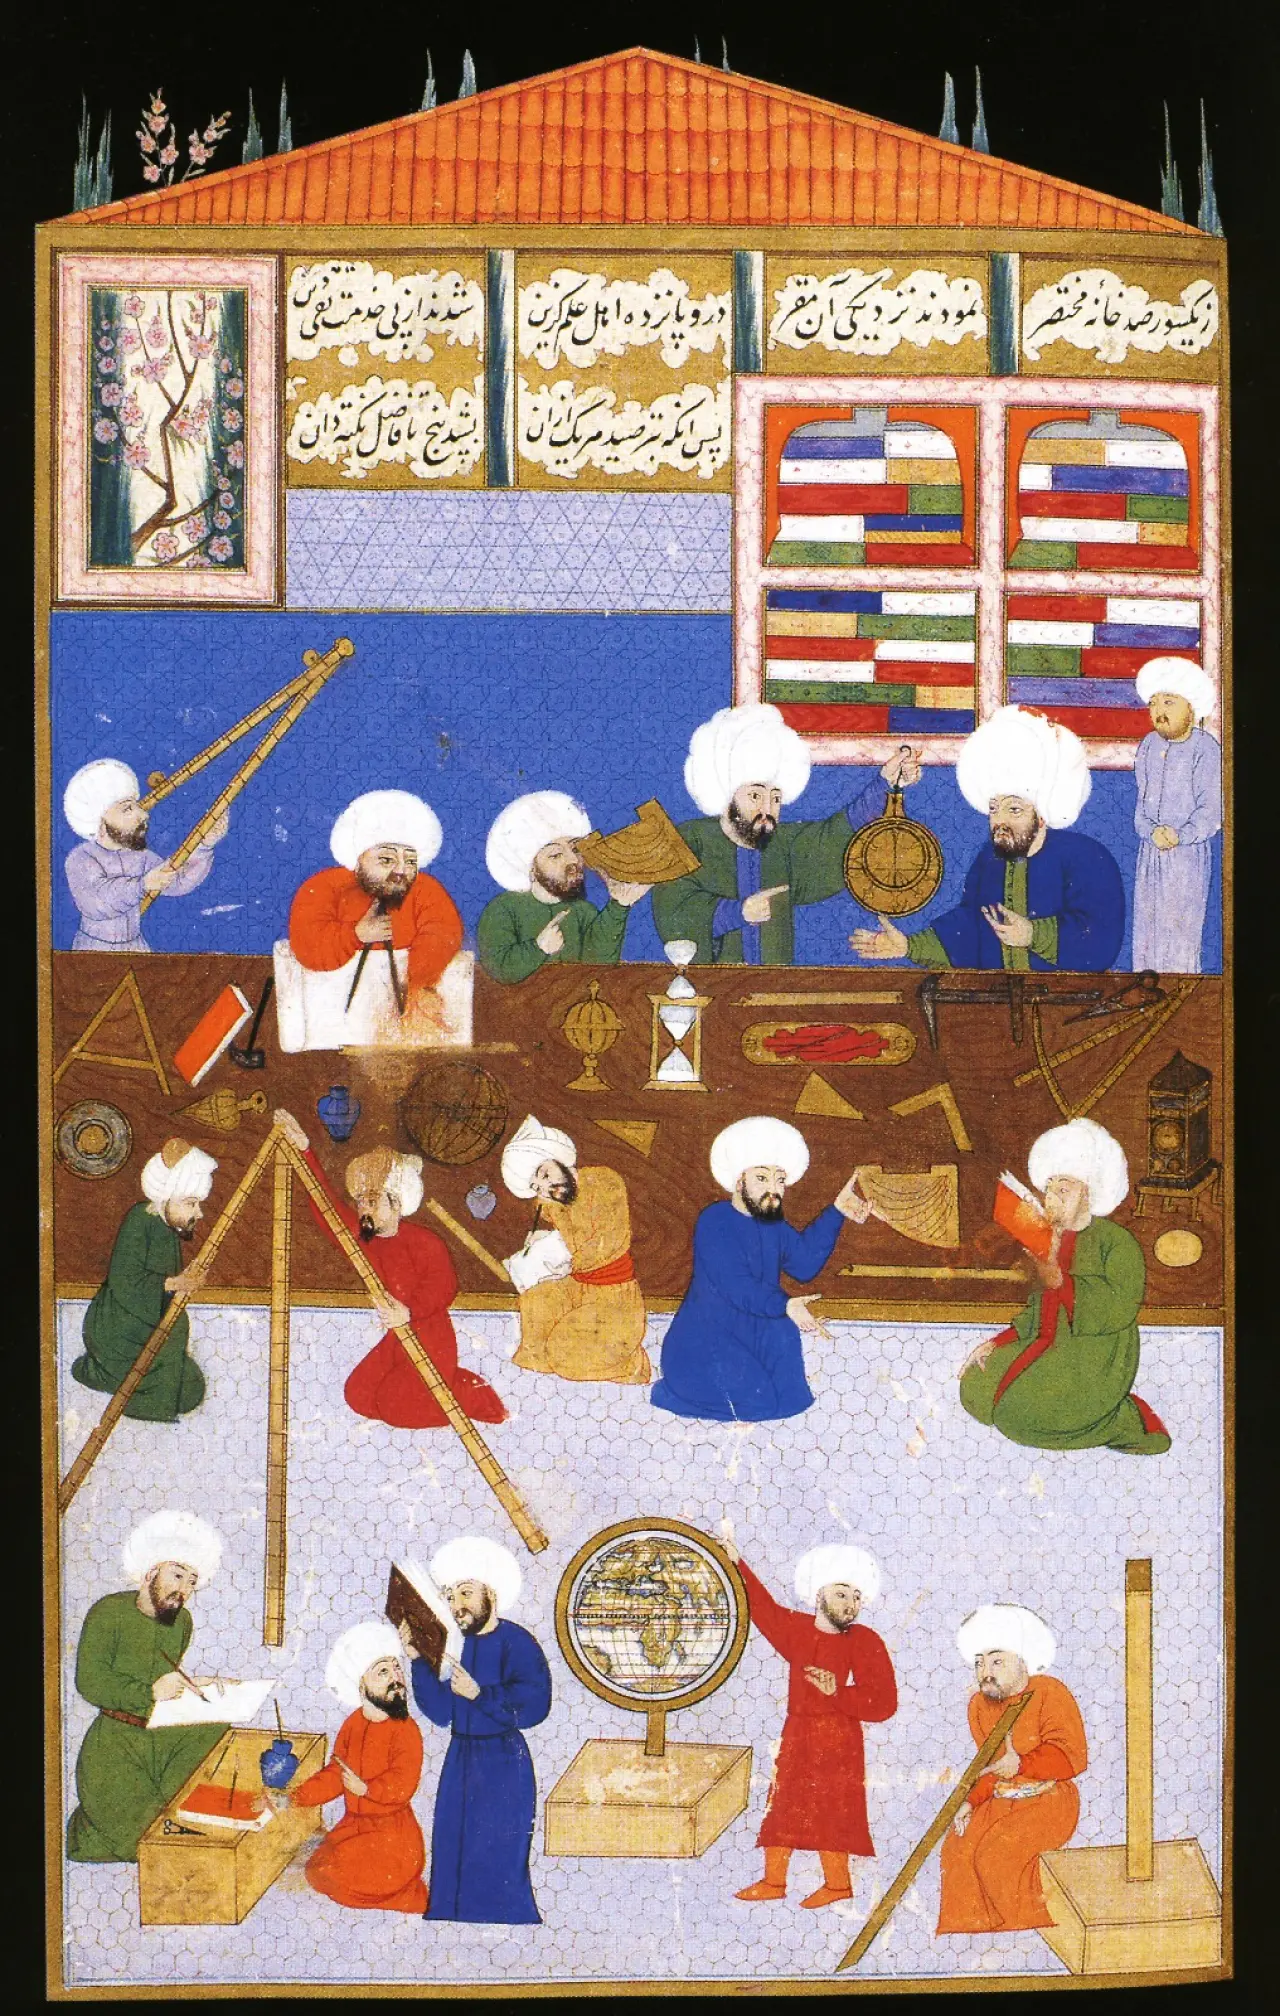 ز یکسو رصد خانهٔ مختصر
نمودند نزدیکی آن مقر
درو پانزده اهل علم گزین
شدند از پی خدمت تقی دین
پس آنکه بترصید هر یک ازان
بشد پنج تا فاضل نکته دان